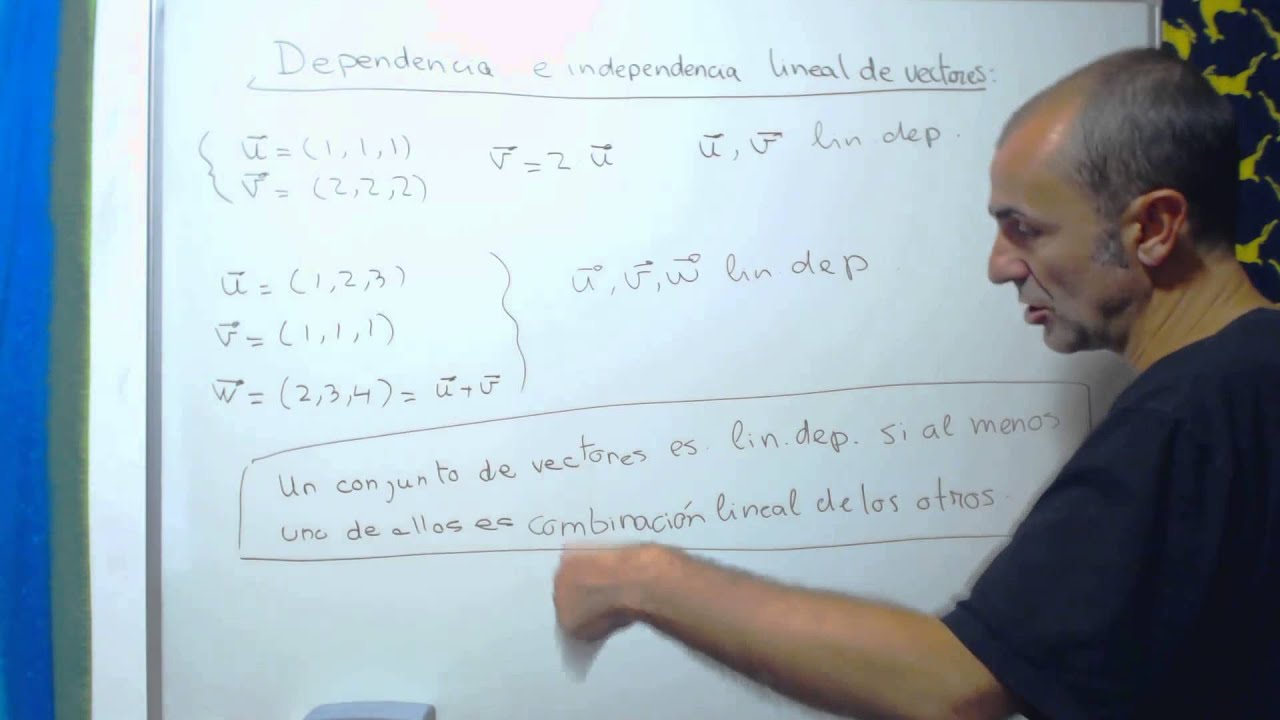 Dependencia e independencia lineal de vectores:
u⃗ = (1, 1, 1) v⃗ = 2 u⃗ u⃗, v⃗ lin dep.
v⃗ = (2, 2, 2)
u⃗ = (1, 2, 3) u⃗, v⃗, w⃗ lin dep
v⃗ = (1, 1, 1)
w⃗ = (2, 3, 4) = u⃗ + v⃗
Un conjunto de vectores es. lin. dep. si al menos
uno de ellos es combinación lineal de los otros.